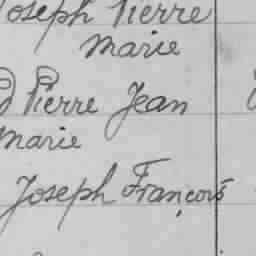 Joseph Pierre
Marie
Pierre Jean
Marie
Joseph François